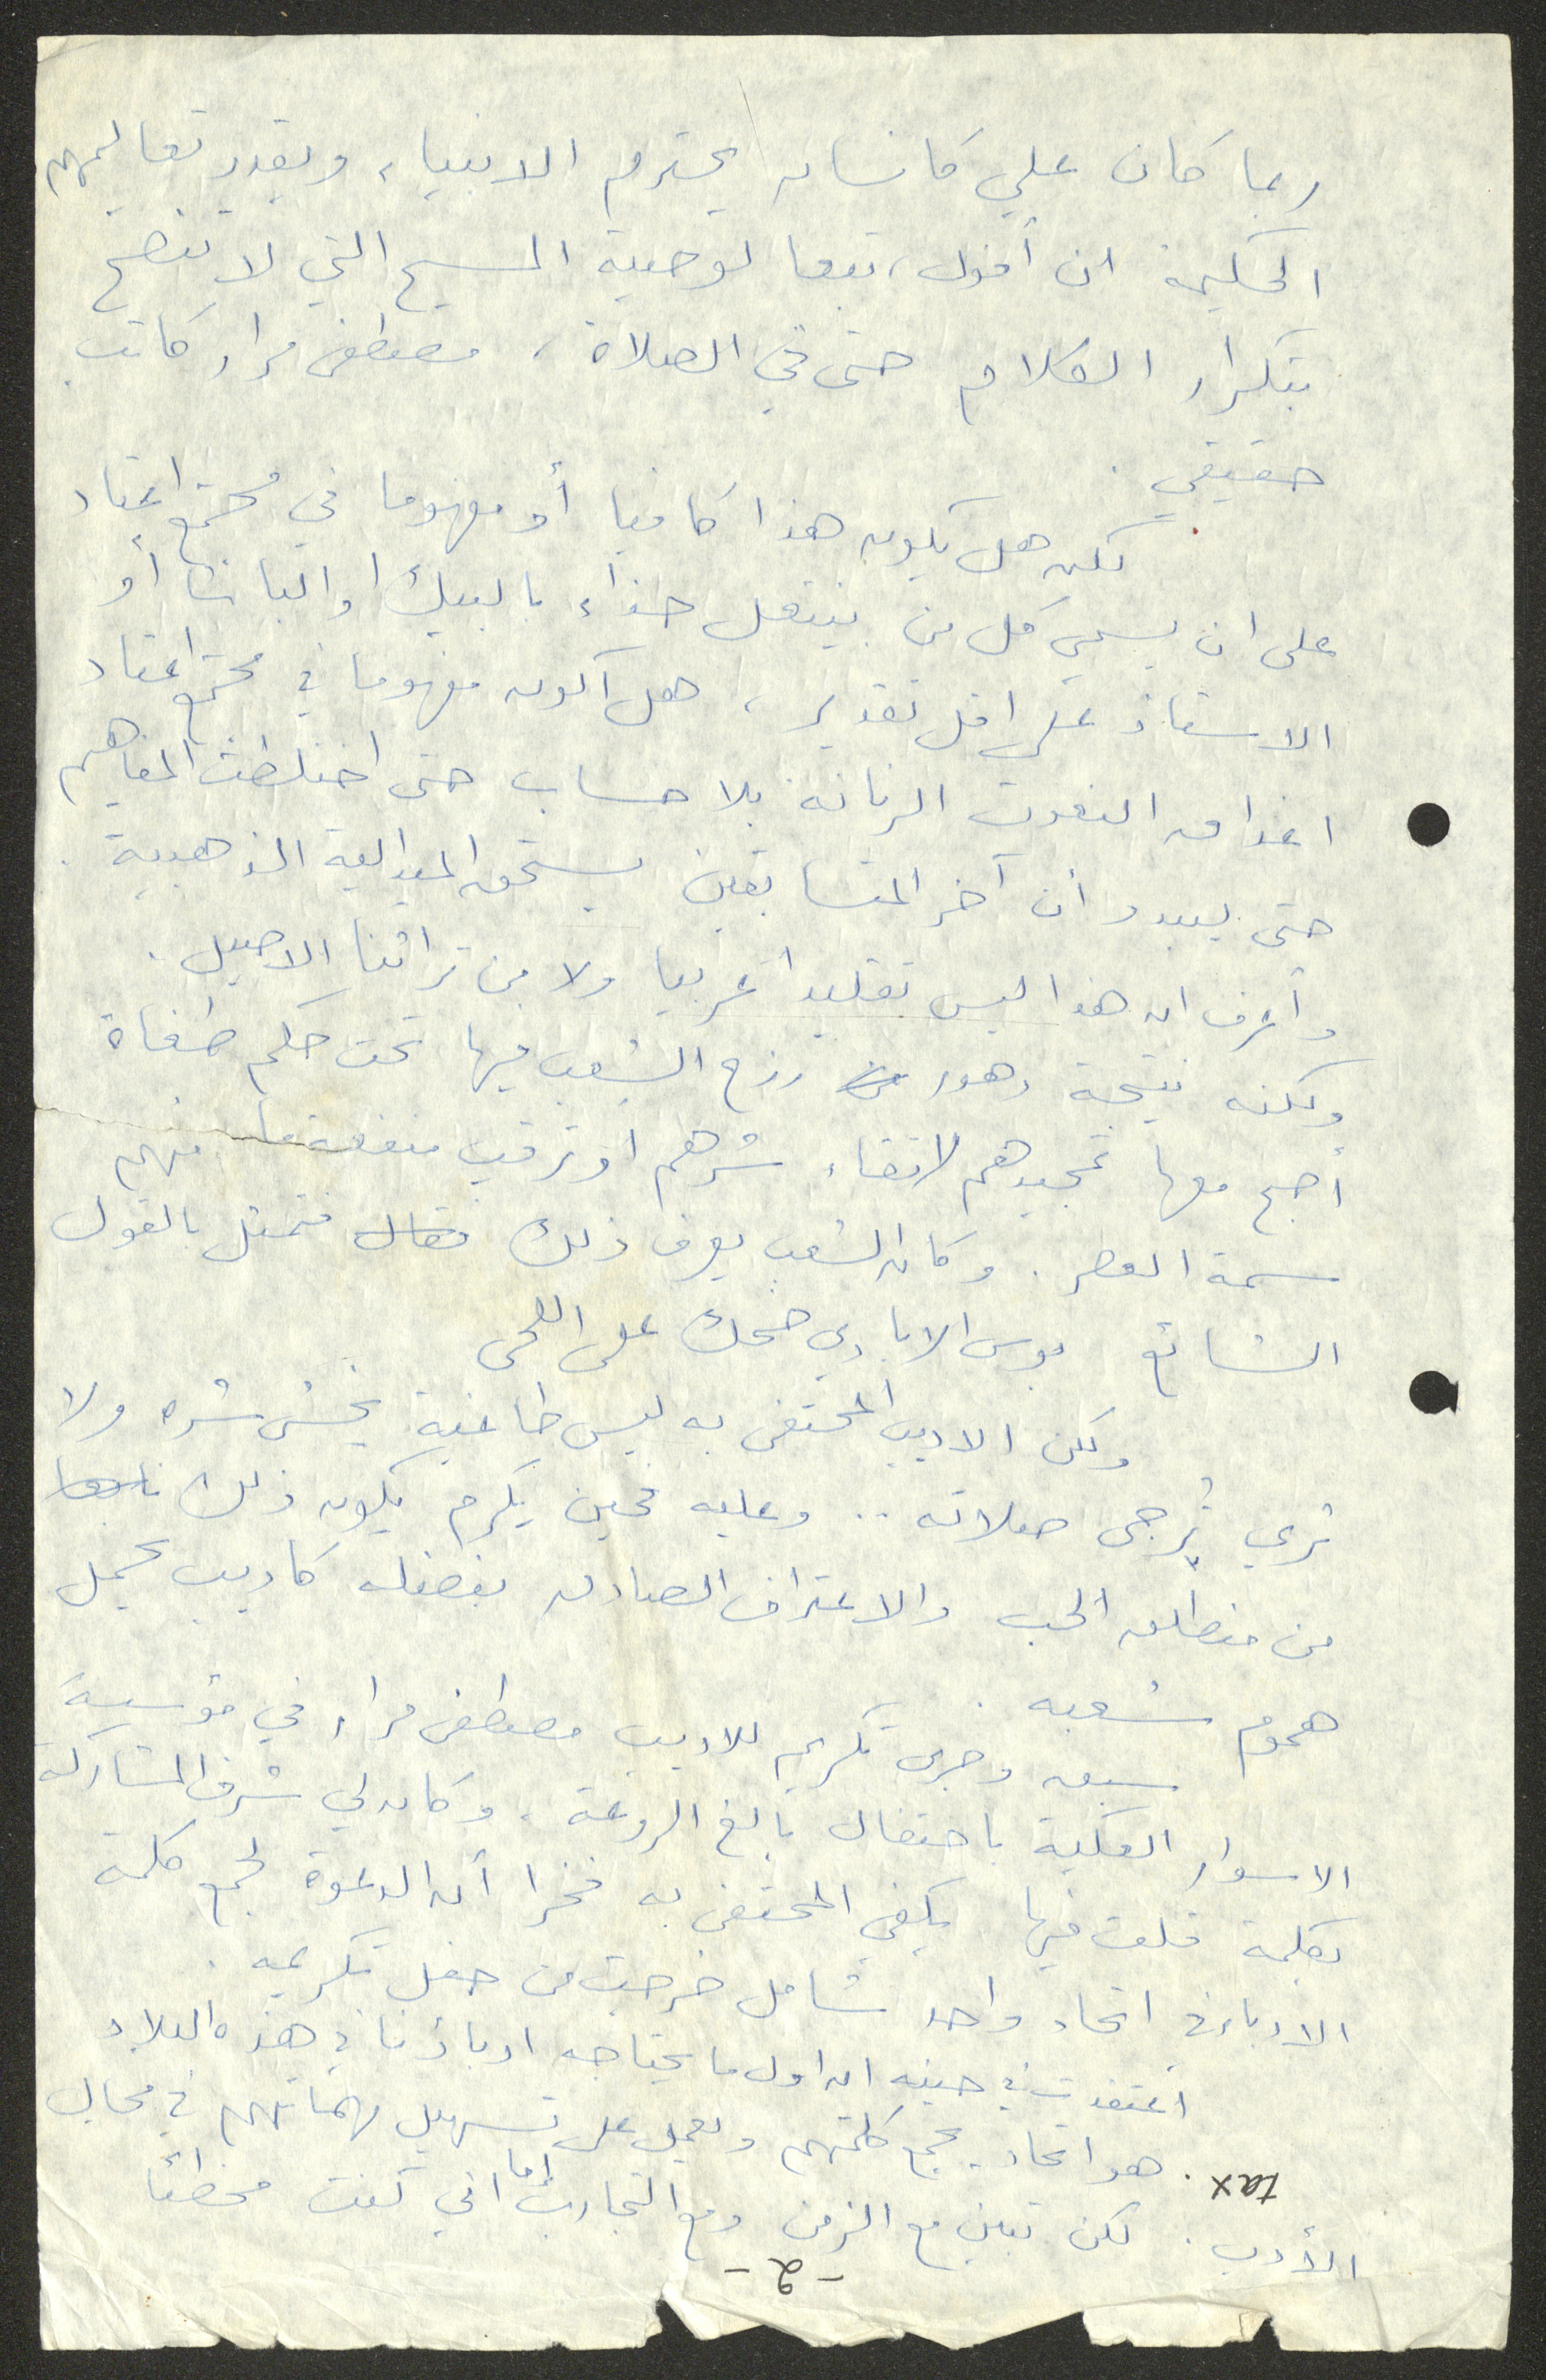 ربما كان علي كانسان يحترم الانبياء، ويقدر تعاليمهم
الحكيمة ان أقول، تبعا لوصية المسيح التي لا تنصح
بتكرار الكلام حتى في الصلاة، مصطفى مرار كاتب
حقيقي.
لكن هل يكون هذا كافيا أو مفهوما في مجتمع اعتاد
على ان يسمي كل من ينتعل حذاء بالبيك او الباشا أو
الاستاذ على اقل تقدير، هل أكون مفهوما في مجتمع اعتاد
اغداق النعوت الرنانة بلا حساب حتى اختلطت المفاهيم
حتى ليبدو أن آخر المتسابقين يستحق الميدالية الذهبية.
وأعرف ان هذا ليس تقليدا غربيا ولا من تراثنا الاصيل.
ولكنه نتيجة دهور رزح الشعب فيها تحت حكم طغاة
أصبح معها تمجيدهم لاتقاء شرهم او ترقب منفعة ما منهم
سمة العصر. وكان الشعب يعرف ذلك فتمثل بالقول
الشائع بوس الايادي ضحك على اللحى
ولكن الاديب المحتفى به ليس طاغية يخشى شره ولا
ثري تُرجى صلاته .. وعليه فحين يكرم يكون ذلك نابعا
من منطلق الحب والاعتراف الصادق بفضله كاديب يحمل
هموم شعبه.
سبق وجرى تكريم للاديب مصطفى مرار في مؤسسة
الاسوار العكية باحتفال بالغ الروعة، وكان لي شرف المشاركة
بكلمة قلت فيها يكفي المحتفى به فخرا أن الدعوة لجمع كلمة
الادباء في اتحاد واحد شامل خرجت من حفل تكريمه.
اعتقدت في حينه ان اول ما يحتاجه ادباؤنا في هذه البلاد
هو اتحاد يجمع كلمتهم ويعمل على تسهيل مهماتهم في مجال
tax
الأدب. لكن تبين مع الزمن ومع التجارب اني كنت مخطئا
-2-